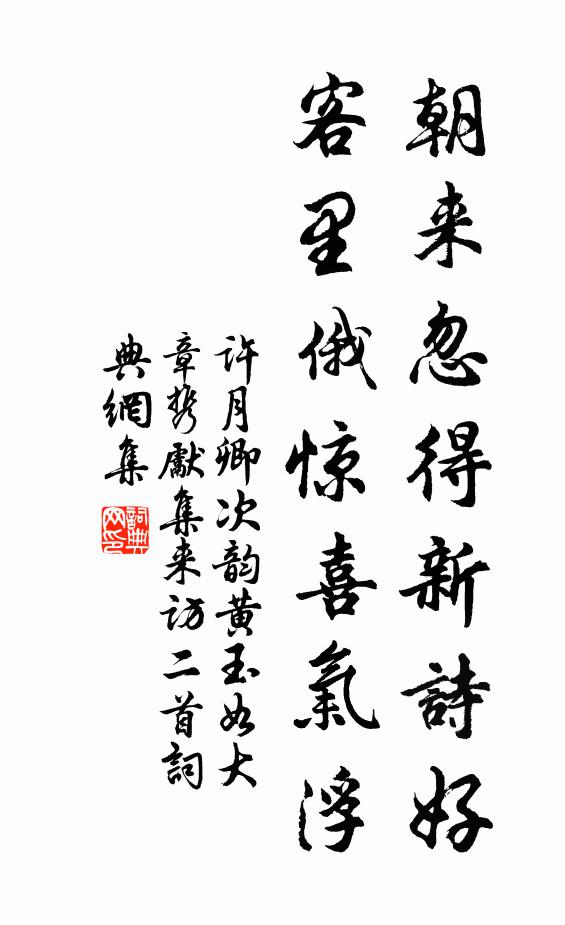 朝来忽得新詩好
客里俄惊喜氣浮
许月卿次韵黄玉如大
章携獻集来访二首詞
典網集
詞典网印